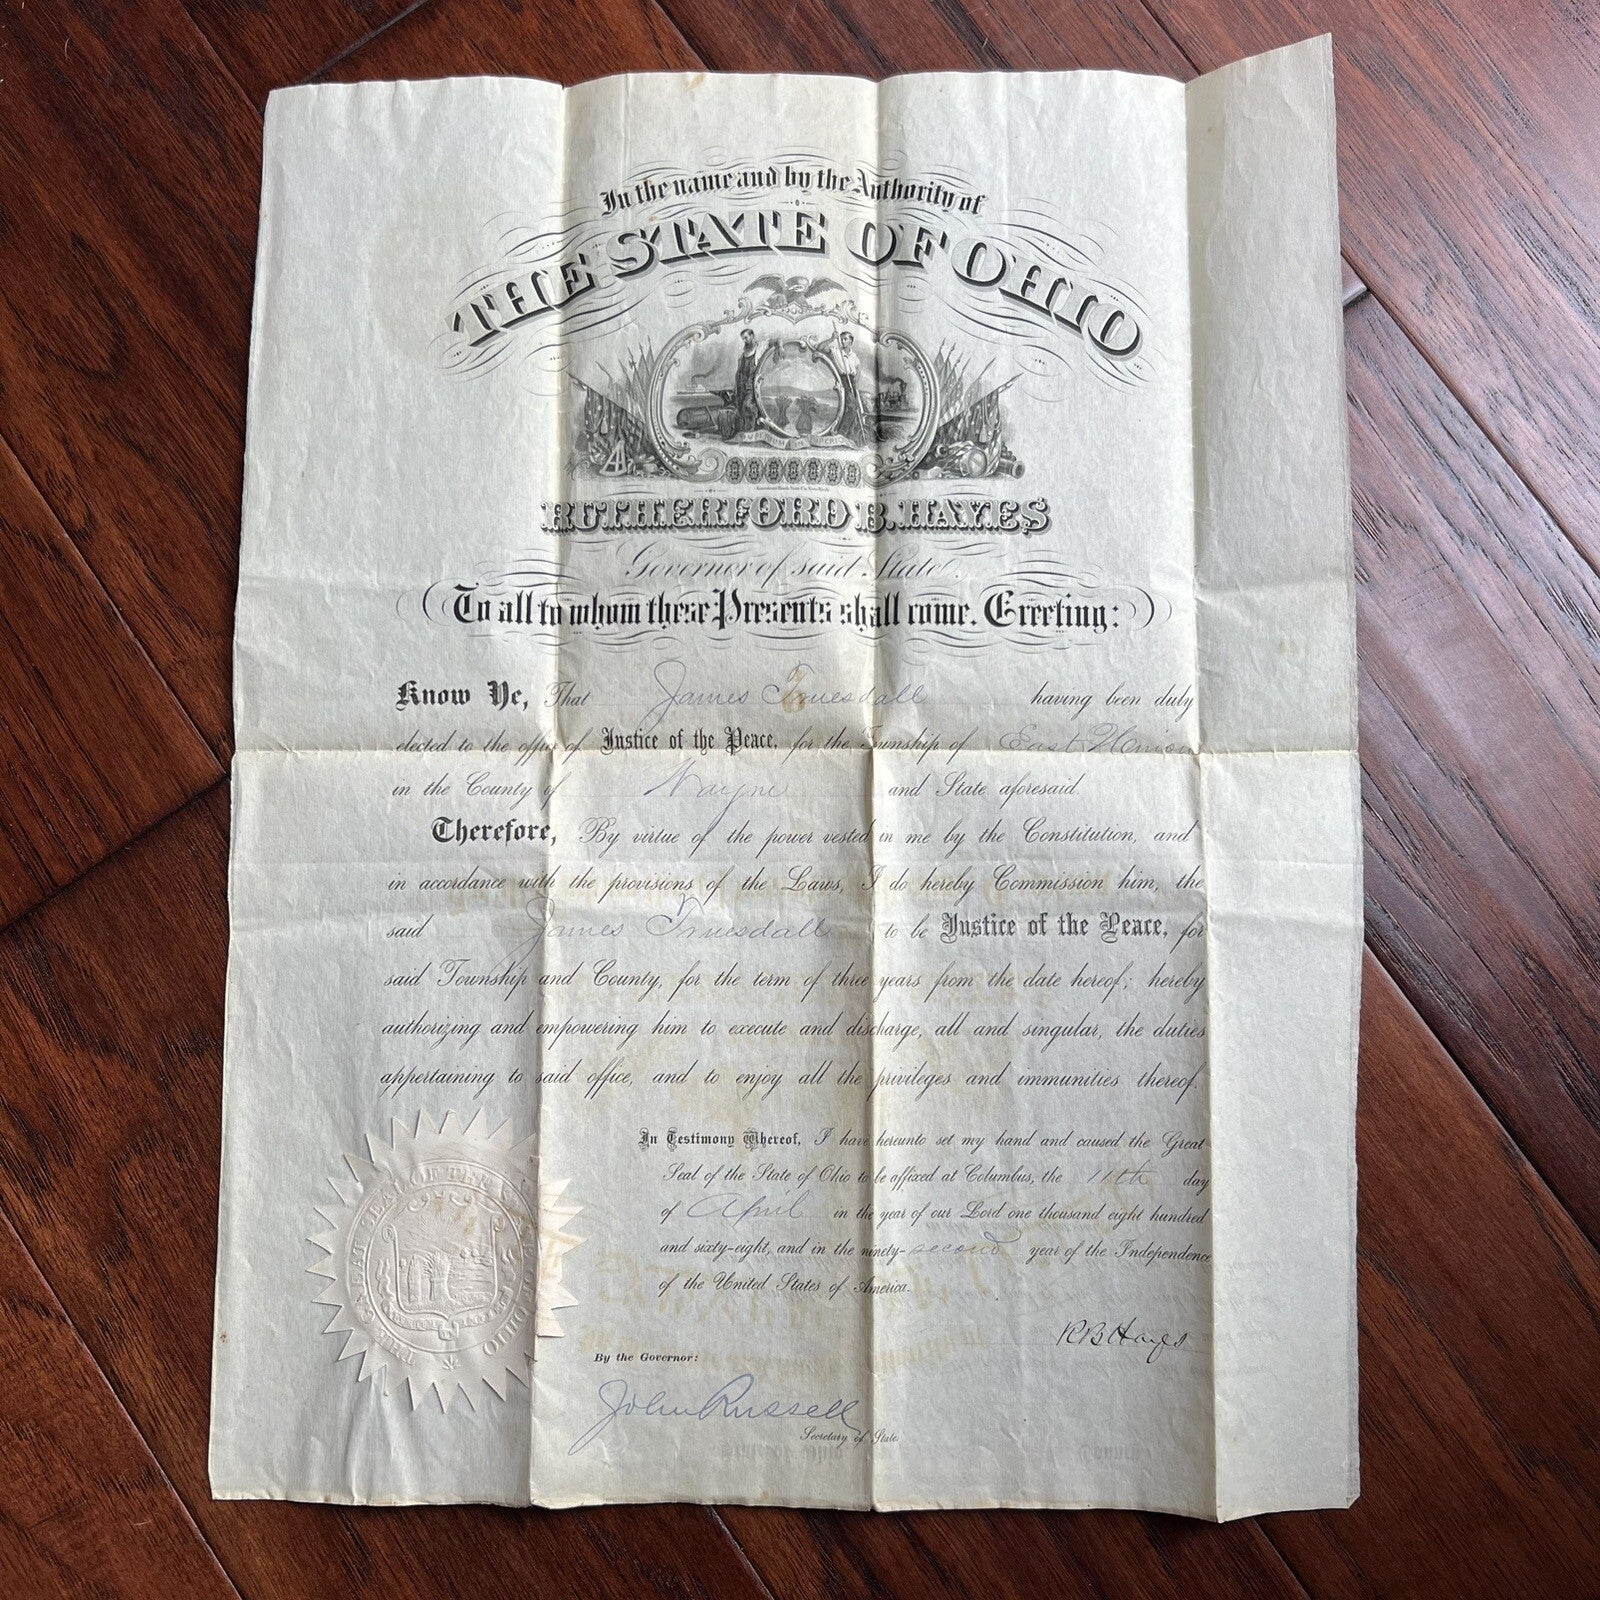 In the name and by the Authority of
THE STATE OF OHIO
IMPERIUM IN IMPERIO
American Bank Note Co. New York
RUTHERFORD B. HAYES
Governor of said State.
To all to whom these Presents shall come, Greeting:
Know Ye, That James Truesdall having been duly
elected to the office of Justice of the Peace, for the Township of East Union
in the County of Wayne and State aforesaid.
Therefore, By virtue of the power vested in me by the Constitution, and
in accordance with the provisions of the Laws, I do hereby Commission him, the
said James Truesdall to be Justice of the Peace, for
said Township and County, for the term of three years from the date hereof; hereby
authorizing and empowering him to execute and discharge, all and singular, the duties
appertaining to said office, and to enjoy all the privileges and immunities thereof.
In Testimony Whereof, I have hereunto set my hand and caused the Great
Seal of the State of Ohio to be affixed at Columbus, the 11th day
of April in the year of our Lord one thousand eight hundred
and sixty-eight, and in the ninety-second year of the Independence
of the United States of America.
RBHayes
By the Governor:
John Russell
Secretary of State.
THE GREAT SEAL OF THE STATE OF OHIO